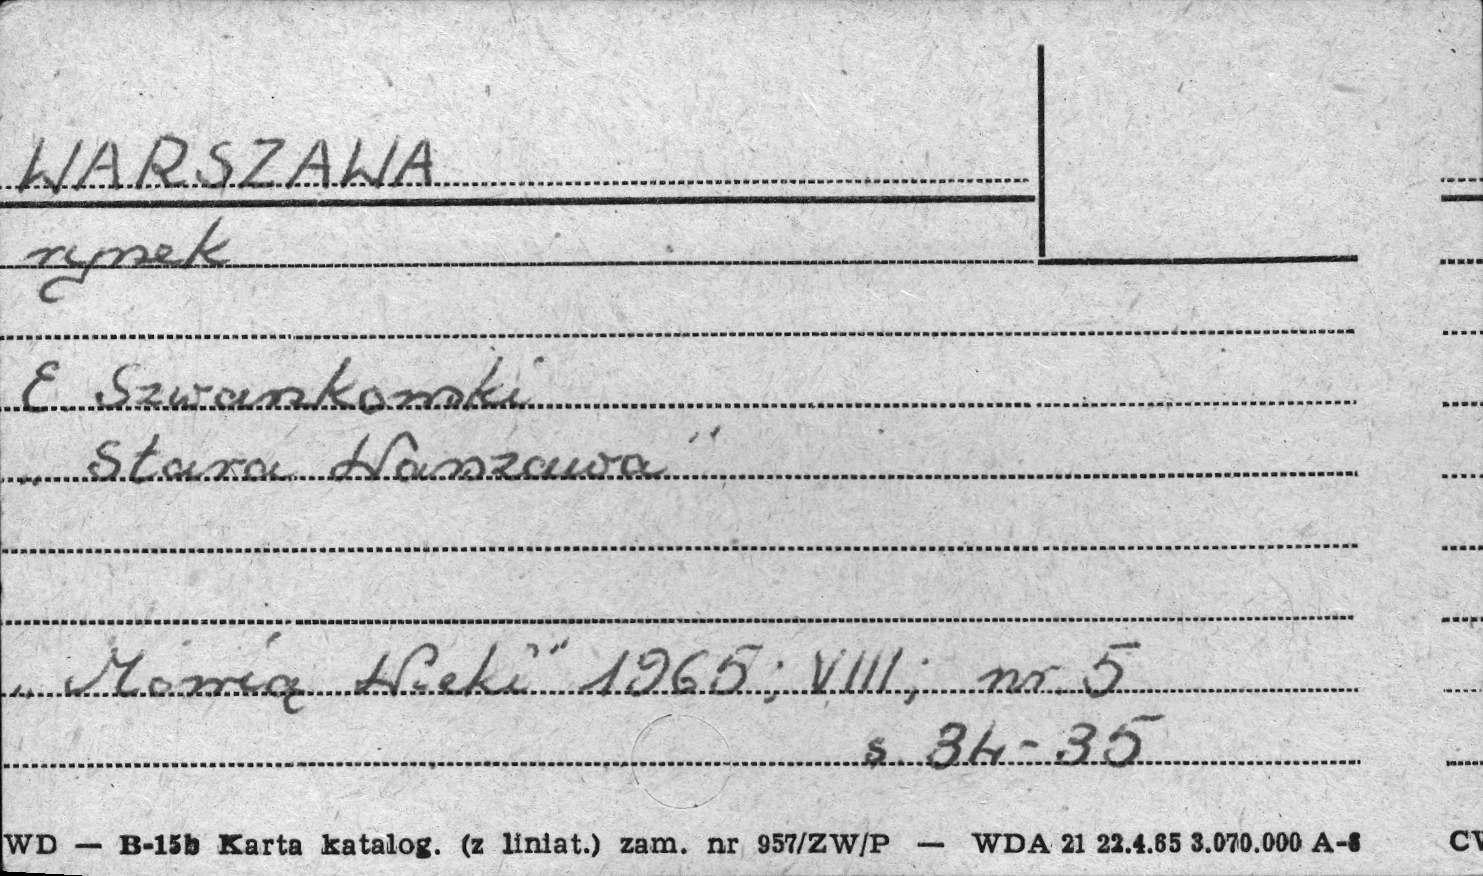 WARSZAWA
rynek
E. Szwankowski
„Stara Warszawa"
„Mówią Wieki" 1965; VIII; nr. 5
s. 34-35
WD — B-15b Karta katalog. (z liniat.) zam. nr 957/ZW/P — WDA 21 22.4.65 3.070.000 A-6